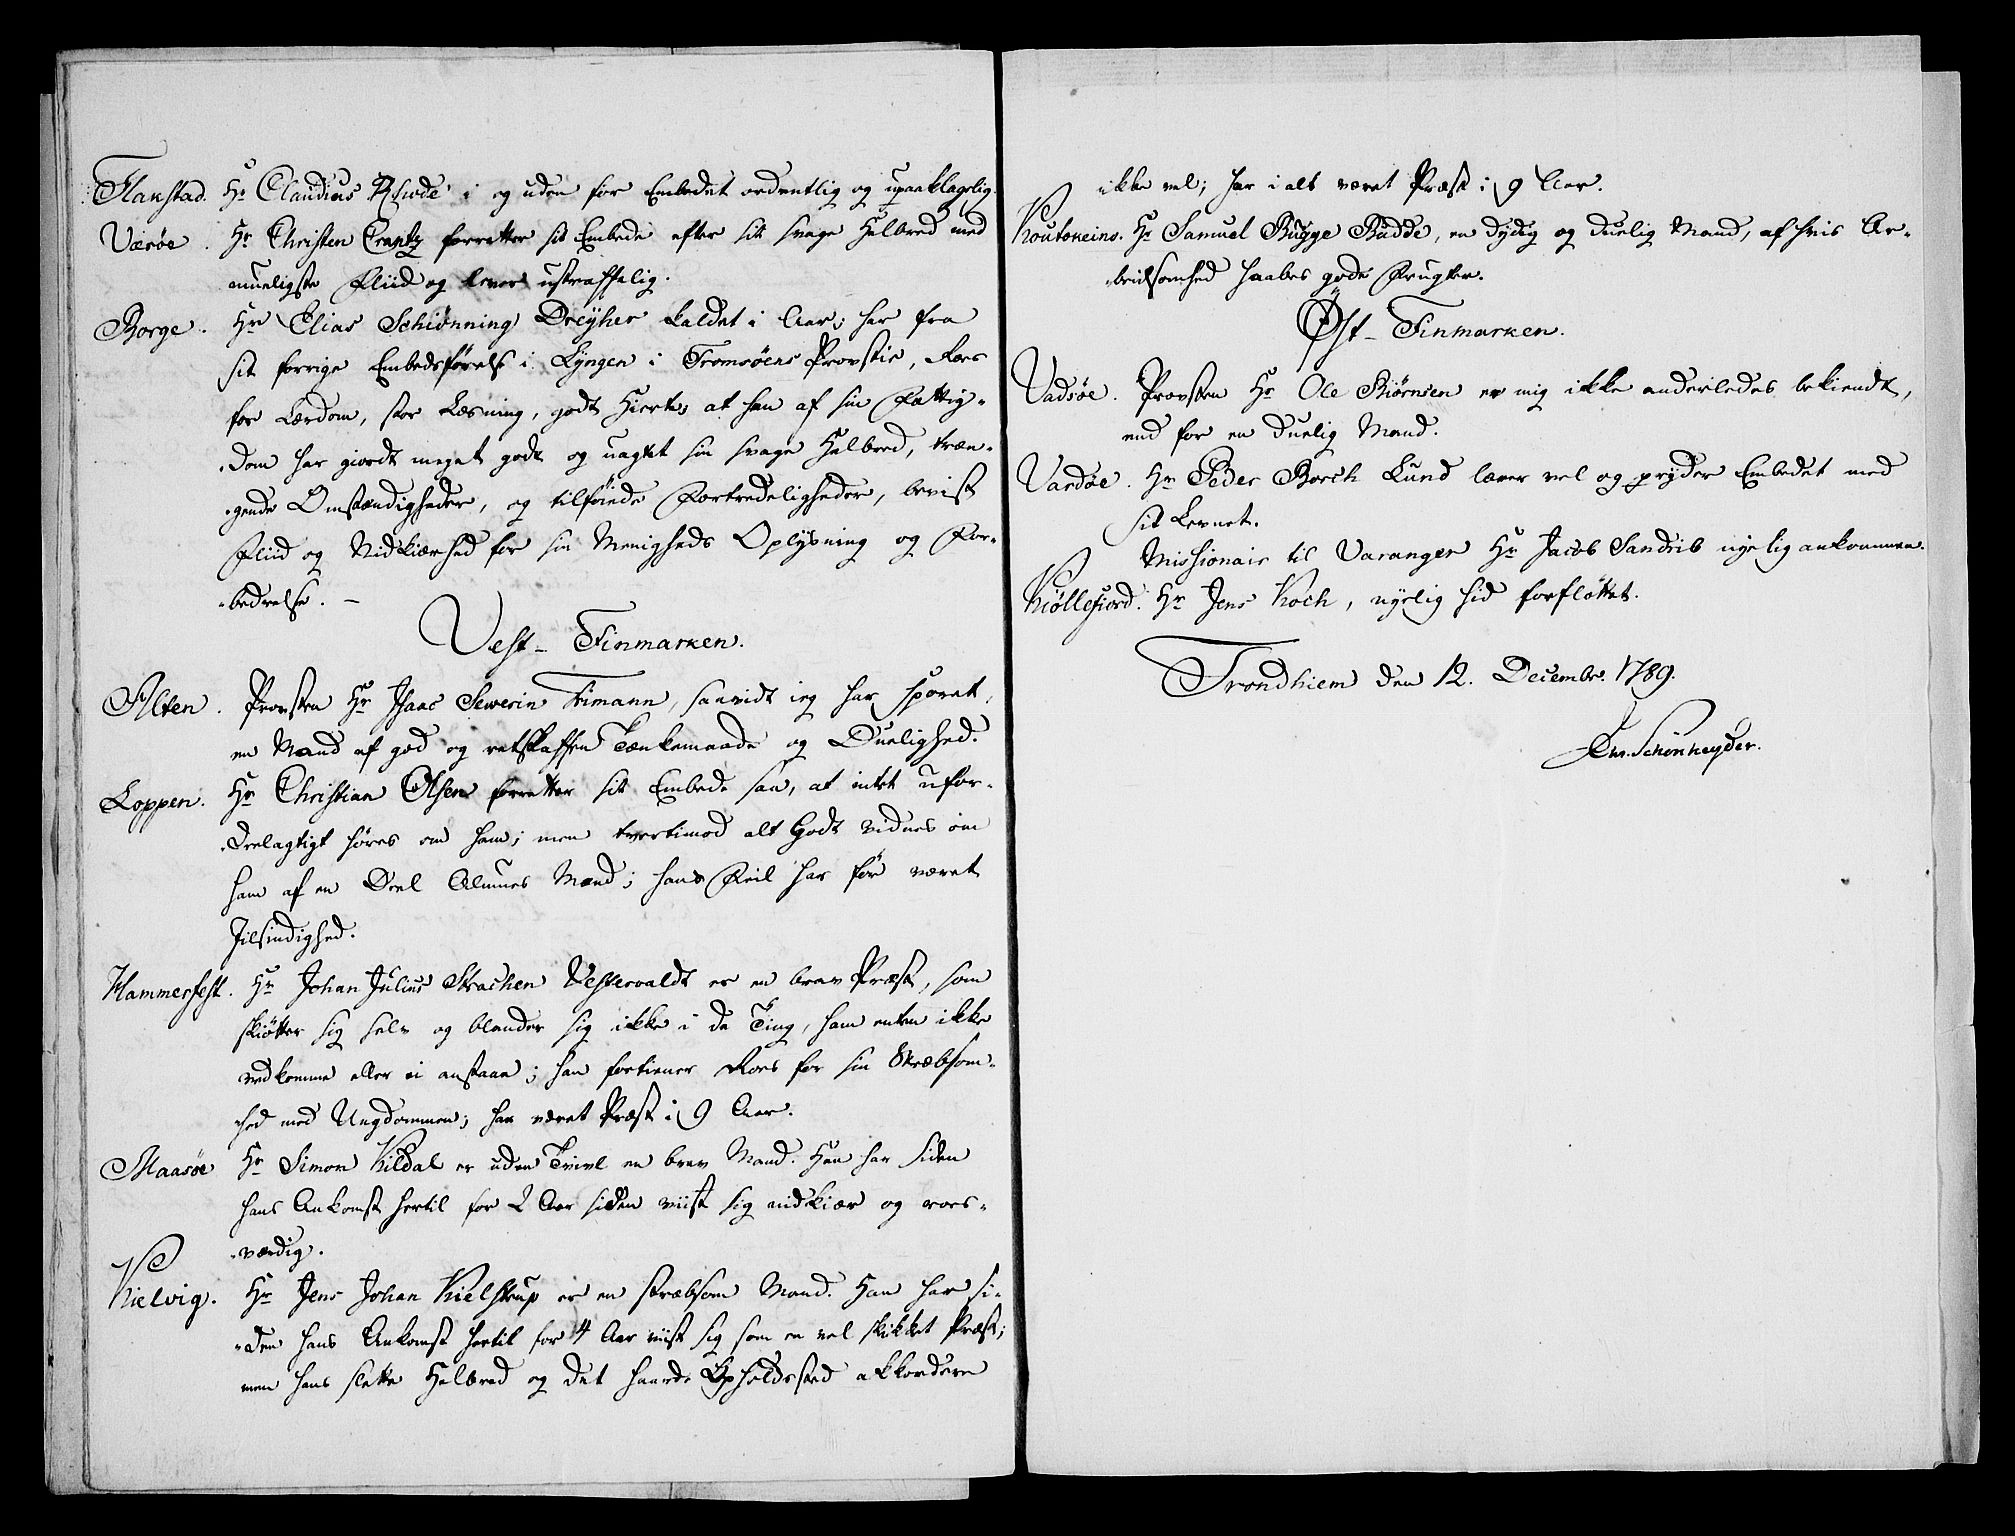 Flakstad. Hr Claudius Rhode i og uden for Embedet ordentlig og upaaklagelig.
Værøe. Hr Christen Crantz forretter sit Embede efter sit svage Helbred med
mueligste Fliid og lever ustraffelig.
Borge. Hr Elias Schiønning Dreyher kaldet i Aar; har fra
sit forrige Embedsførelse i Lyngen i Tromsøens Provstie, Roes
for Lærdom, stor Læsning, godt Hierte, at han af sin Fattig-
-dom har giordt meget godt og uagtet sin svage Helbred, træn-
-gende Omstændigheder, og tilføiede Fortredeligheder, beviist
Fliid og Nidkiærhed for sin Menigheds Oplysning og For-
-bedrelse. –
Vest-Finmarken.
Alten. Provsten Hr Isaac Sewerin Frimann, saavidt ieg har sporet,
en Mand af god og retskaffen Tænkemaade og Duelighed.
Loppen. Hr Christian Olsen forretter sit Embede saa, at intet ufor-
-deelagtigt høres om ham; men tvertimod alt Godt vidnes om
ham af en Deel Almues Mænd; hans Feil har før været
Iilsindighed.
Hammerfest. Hr Johan Julius Strachen Vestervaldt er en brav Præst, som
skiøtter sig selv og blander sig ikke i de Ting, ham enten ikke
vedkomme eller ei anstaae; han fortiener Roes for sin Stræbsom-
-hed med Ungdommen; har været Præst i 9 Aar.
Maasøe Hr Simon Kildal er uden Tvivl en brav Mand. Han har siden
hans Ankomst hertil for 2 Aar siden viist sig nidkiær og roes-
-værdig.
Kielvig. Hr Jens Johan Kielstrup er en stræbsom Mand. Han har si-
-den hans Ankomst hertil for 4 Aar viist sig som en vel skikket Præst;
men hans slette Helbred og det haarde Opholdssted akkordere
ikke vel; har i alt været Præst i 9 Aar.
Koutokeino. Hr Samuel Bugge Budde, en dydig og duelig Mand, af hvis Ar-
-beidsomhed haabes gode Frugter.
Øst-Finmarken.
Vadsøe. Provsten Hr Ole Biørnsen er mig ikke anderledes bekiendt,
end for en duelig Mand.
Vardøe. Hr Peder Borch Lund lærer vel og pryder Embedet med
sit Levnet.
Missionair til Varanger Hr Jacob Sandrib nyelig ankommen.
Kiøllefiord. Hr Jens Koch, nyelig hid forfløttet.
Trondhiem den 12. Decembr. 1789.
Schønheyder.